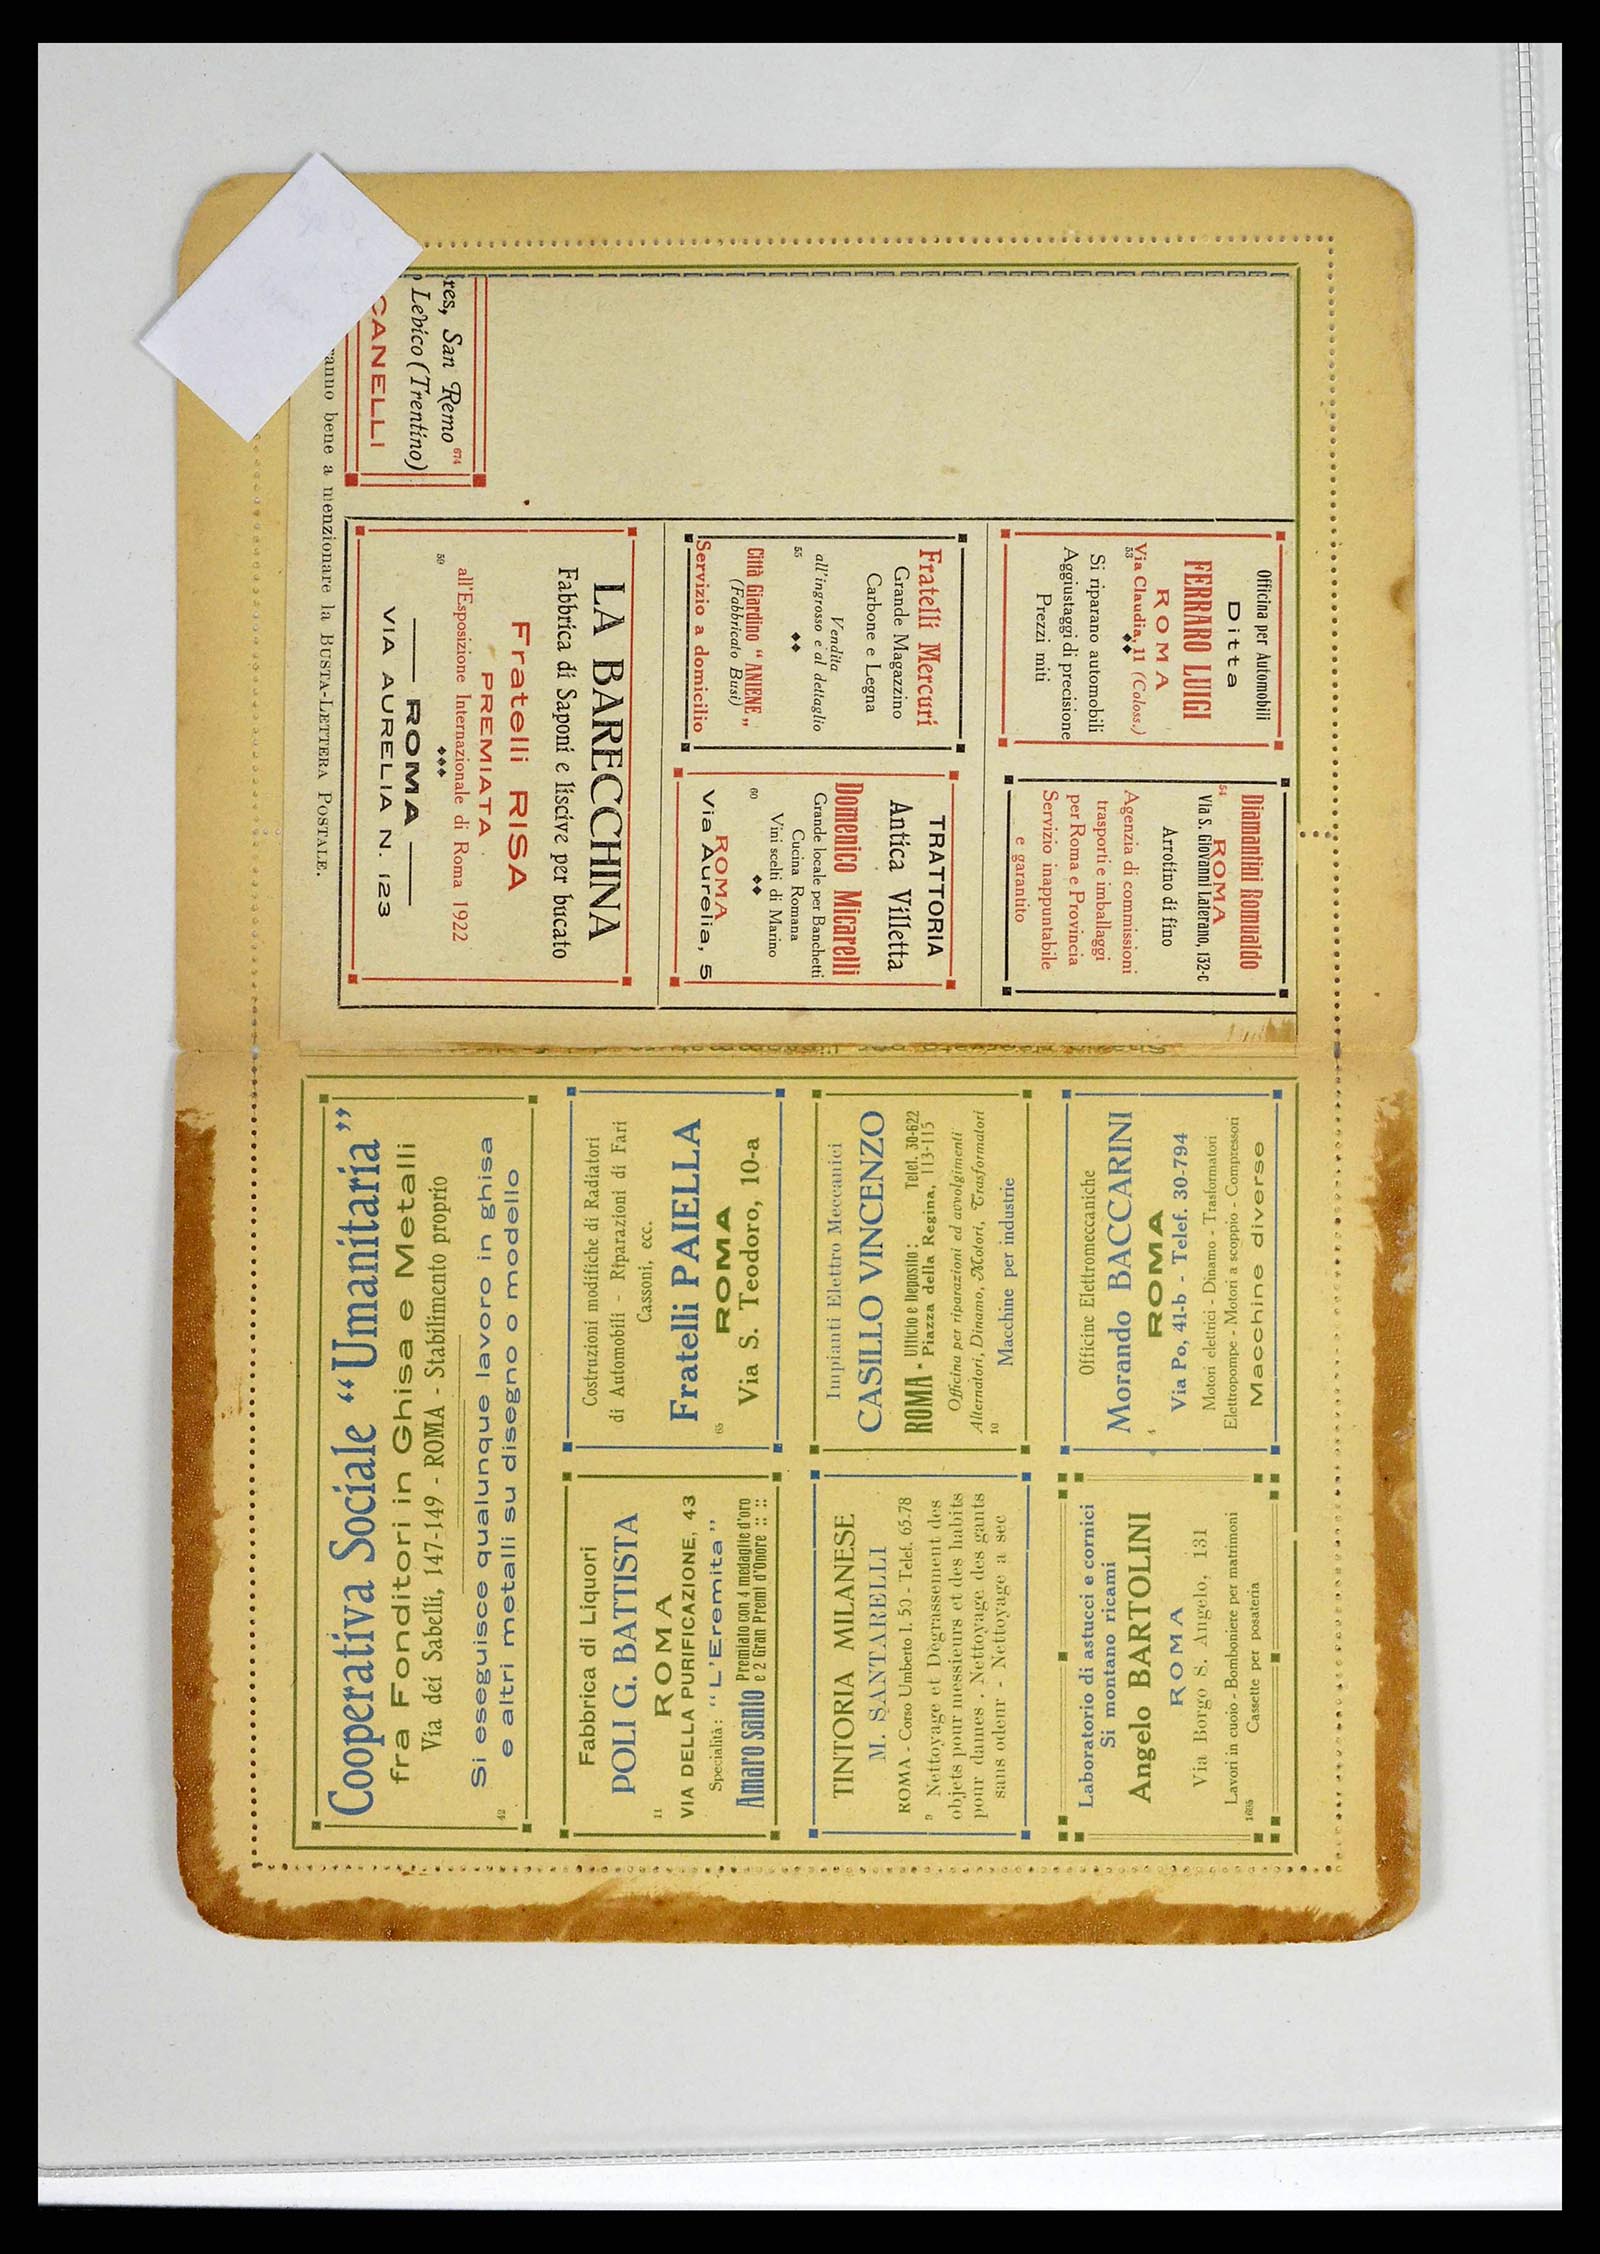 res, San Remo 674
Levico (Trentino)
CANELLI
anno bene a menzionare la BUSTA-LETTERA POSTALE.
Officina per Automobili
Ditta
FERRARO LUIGI
ROMA
Via Claudia, 11 (Coloss.)
53
Si riparano automobili
Aggiustaggi di precisione
Prezzi miti
Diamantini Romualdo
54
ROMA
Via S. Giovanni Laterano, 132-C
Arrotino di fino
Agenzia di commissioni
trasporti e imballaggi
per Roma e Provincia
Servizio inappuntabile
e garantito
Fratelli Mercuri
Grande Magazzino
Carbone e Legna
Vendita
all'ingrosso e al dettaglio
55
Città Giardino "ANIENE„
(Fabbricato Busi)
Servizio a domicilio
TRATTORIA
Antica Villetta
Domenico Micarelli
Grande locale per Banchetti
Cucina Romana
Vini scelti di Marino
60
ROMA
Via Aurelia, 5
LA BARECCHINA
Fabbrica di Saponi e liscive per bucato
Fratelli RISA
PREMIATA
all'Esposizione Internazionale di Roma 1922
59
ROMA
VIA AURELIA N. 123
Cooperativa Sociale “Umanitaria”
fra Fonditori in Ghisa e Metalli
Via dei Sabelli, 147-149 - ROMA - Stabilimento proprio
Si eseguisce qualunque lavoro in ghisa
e altri metalli su disegno o modello
42
Fabbrica di Liquori
POLI G. BATTISTA
11
ROMA
VIA DELLA PURIFICAZIONE, 43
Specialità: “L'Eremita”
Amaro santo Premiato con 4 medaglie d'oro
e 2 Gran Premi d'Onore :: ::
Costruzioni modifiche di Radiatori
di Automobili - Riparazioni di Fari
Cassoni, ecc.
Fratelli PAIELLA
65
ROMA
Via S. Teodoro, 10-a
TINTORIA MILANESE
M. SANTARELLI
ROMA - Corso Umberto I. 50 - Telef. 65-78
9
Nettoyage et Degrassement des
objets pour messieurs et des habits
pour dames. Nettoyage des gants
sans odeur - Nettoyage a sec
Impianti Elettro Meccanici
CASILLO VINCENZO
ROMA - Ufficio e Deposito: Telef. 30-622
Piazza della Regina, 113-115
Officina per riparazioni ed avvolgimenti
Alternatori, Dinamo, Motori, Trasformatori
10
Macchine per industrie
Laboratorio di astucci e cornici
Si montano ricami
Angelo BARTOLINI
ROMA
Via Borgo S. Angelo, 131
Lavori in cuoio - Bomboniere per matrimoni
1695
Cassette per posateria
Officine Elettromeccaniche
Morando BACCARINI
4
ROMA
Via Po, 41-b - Telef. 30-794
Motori elettrici - Dinamo - Trasformatori
Elettropompe - Motori a scoppio - Compressori
Macchine diverse